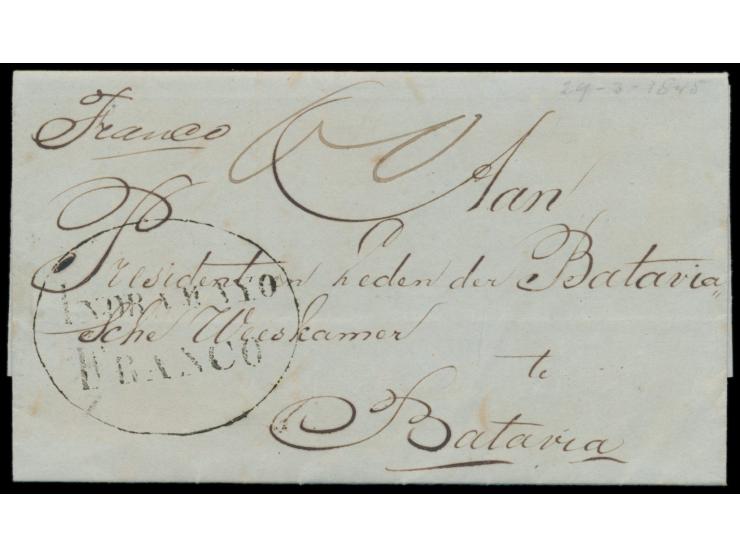 29-3-1845
Franco
60
Aan
President en Leden der Batavia„
sche Weeskamer
te
Batavia
INDRAMAYO
FRANCO